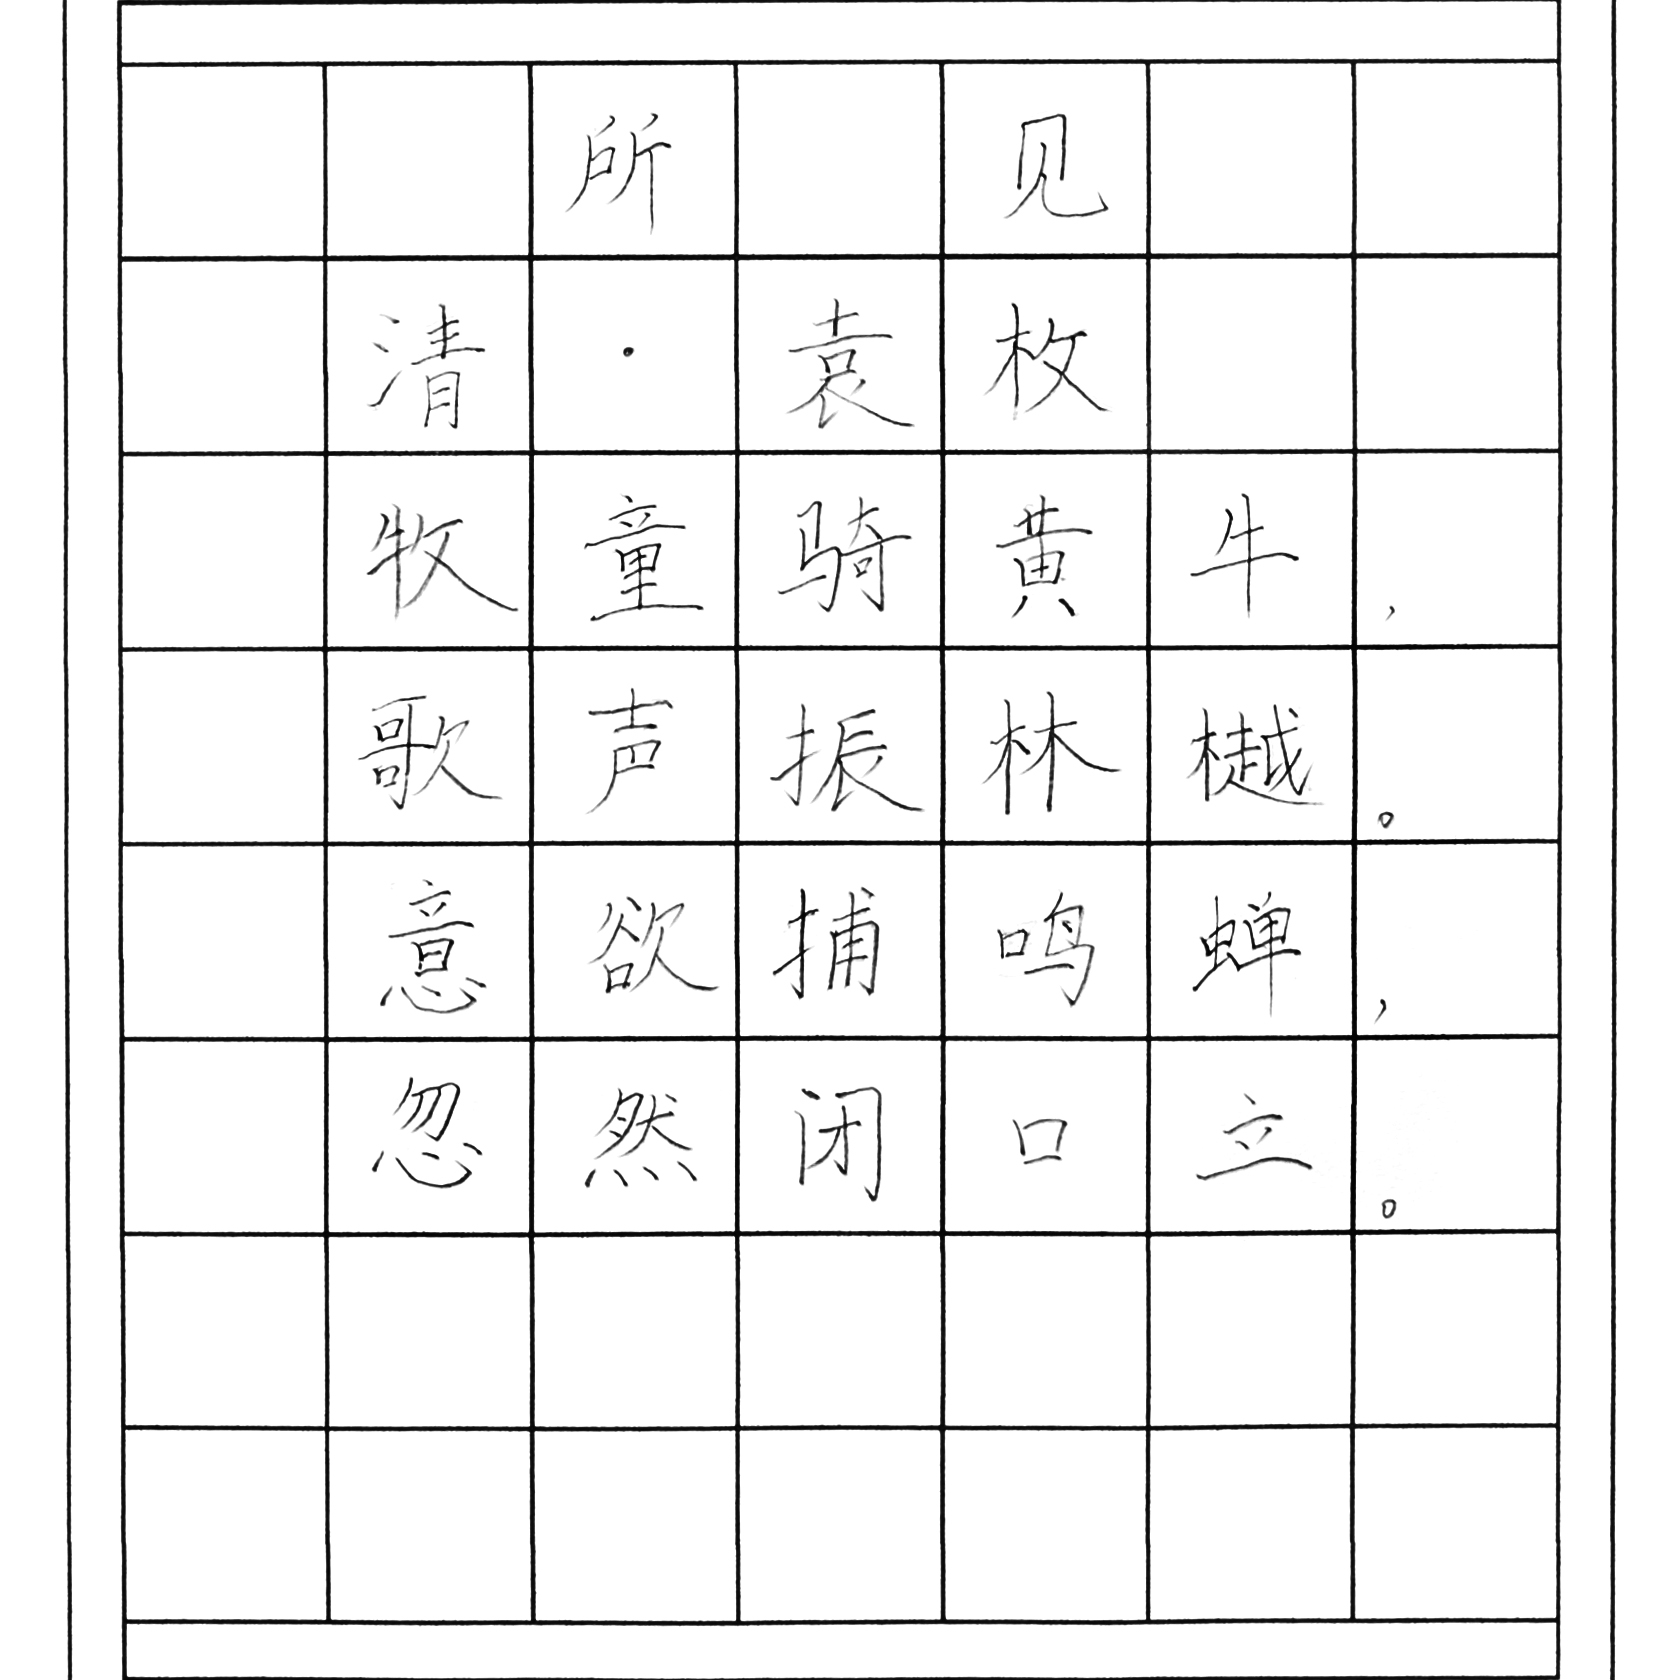 所见
清·袁枚
牧童骑黄牛，
歌声振林樾。
意欲捕鸣蝉，
忽然闭口立。